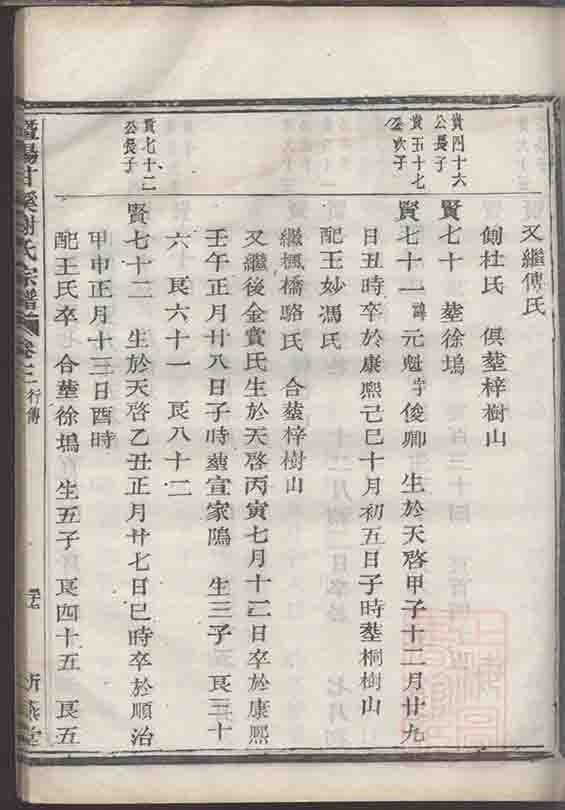 又繼傅氏
側杜氏 俱塟梓樹山
貴四十六公長子
賢七十 塟徐塢
貴五十七公次子
賢七十一 諱元魁字俊卿 生於天啓甲子十二月廿九
日丑時卒於康熙己巳十月初五日子時塟桐樹山
配王妙馮氏
繼楓橋駱氏 合塟梓樹山
又繼後金賁氏生於天啓丙寅七月十二日卒於康熙
壬午正月廿八日子時塟宣家隝 生三子 艮三十
六 艮六十一 艮八十二
貴七十二公長子
賢七十二 生於天啓乙丑正月廿七日巳時卒於順治
甲申正月十三日酉時
配王氏卒 合塟徐塢 生五子 艮四十五 艮五
暨陽甘溪謝氏宗譜 卷三 行傳